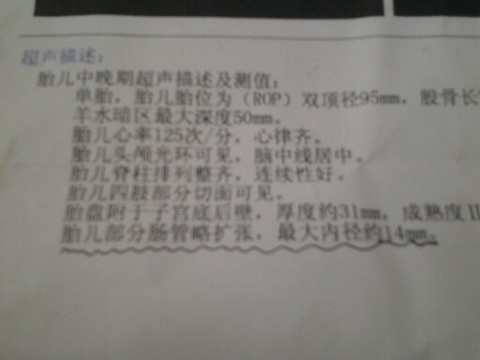 超声描述:
胎儿中晚期超声描述及测值:
单胎，胎儿胎位为（ROP）双顶径95mm，股骨长
羊水暗区最大深度50mm。
胎儿心率125次/分，心律齐。
胎儿头颅光环可见，脑中线居中。
胎儿脊柱排列整齐，连续性好。
胎儿四肢部分切面可见。
胎盘附于子宫底后壁，厚度约31mm，成熟度II
胎儿部分肠管略扩张，最大内径约14mm。